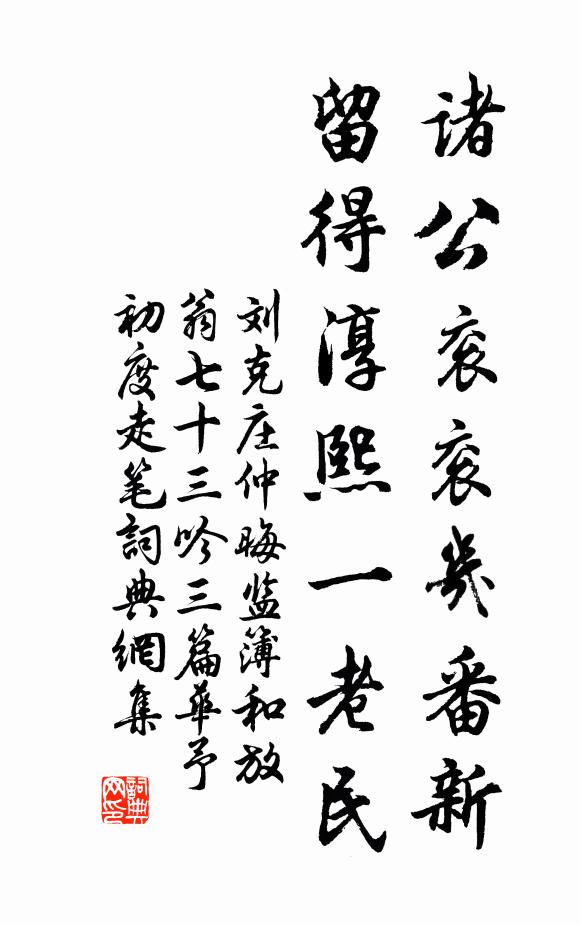 諸公衮衮幾番新
留得淳熙一老民
刘克庄仲晦监簿和放
翁七十三吟三篇華予
初度走笔詞典網集
詞典网印